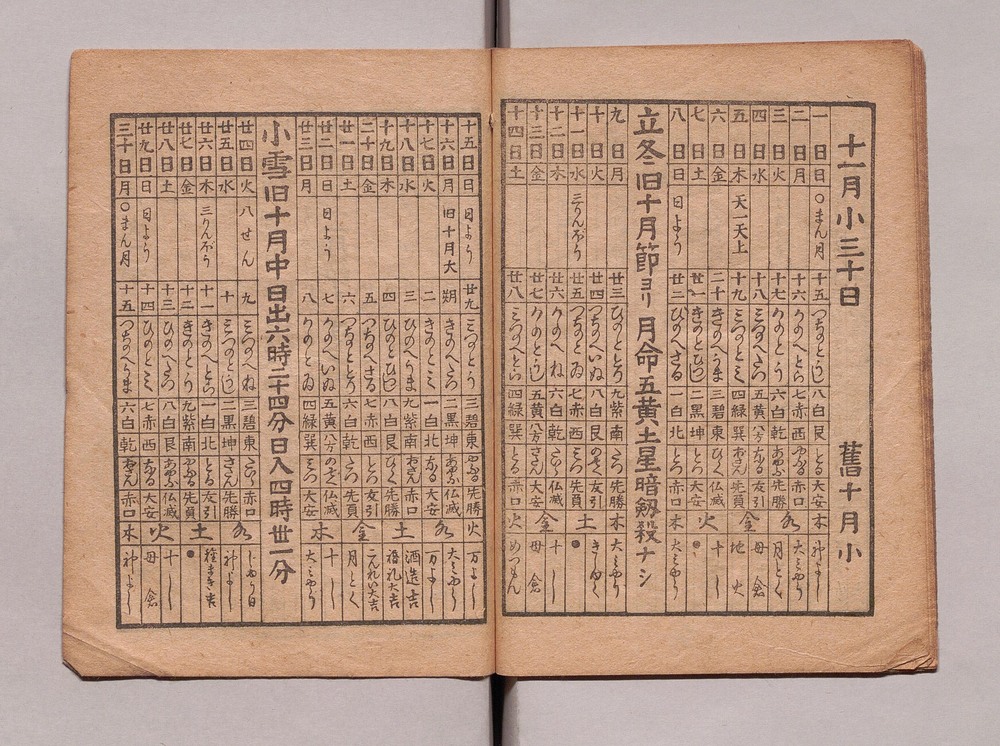 十一月小三十日　舊十月小
一日日 〇まん月 十五 つちのとうし 八白艮 とる 大安 木 神よし
二日月 十六 かのへとら 七赤西 やぶる 赤口 水 大みやう
三日火 十七 かのとう 六白乾 あやふ 先勝 月とく
四日水 十八 みつのへたつ 五黄 なる 友引 金 母倉
五日木 天一天上 十九 みつのとミ 四緑巽 おさん 先負 地火
六日金 二十 きのへうま 三碧東 ひらく 仏滅 火 十し
七日土 廿一 きのとひつじ 二黒坤 とつ 大安 ●
八日日 日よう 廿二 ひのへさる 一白北 とつ 赤口 木 大みやう
立冬 旧十月節ヨリ 月命五黄土星暗剱殺ナシ
九日月 廿三 ひのととり 九紫南 たつ 先勝 木 大みやう
十日火 廿四 つちのへいぬ 八白艮 のぞく 友引 土
十一日水 三りんぼう 廿五 つちのとゐ 七赤西 みつ 先負 ●
十二日木 廿六 かのへね 六白乾 仏滅 金 十し
十三日金 廿七 かのとうし 五黄 さだん 大安 母倉
十四日土 廿八 みつのへとら 四緑巽 とる 赤口 火 めつもん
十五日日 日よう 廿九 みつのとう 三碧東 やぶる 先勝 火 万よし
十六日月 旧十月大 朔 きのへたつ 二黒坤 あやふ 仏滅 大みやう
十七日火 二 きのとミ 一白北 なる 大安 万よし
十八日水 三 ひのへうま 九紫南 おさん 赤口 土 酒造吉
十九日木 四 ひのとひつじ 八白艮 ひらく 先勝 婚礼大吉
二十日金 五 つちのへさる 七赤西 とつ 友引 金 こんれい大吉
廿一日土 六 つちのととり 六白乾 たつ 先負 月とく
廿二日日 日よう 七 かのへいぬ 五黄 のぞく 仏滅 木 十し
廿三日月 八 かのとゐ 四緑巽 みつ 大安 大みやう
小雪 旧十月中 日出六時二十四分 日入四時卅一分
廿四日火 八せん 九 みつのへね 三碧東 たいら 赤口 水
廿五日水 十 みつのとうし 二黒坤 さだん 先勝 神よし
廿六日木 三りんぼう 十一 きのへとら 一白北 とる 友引 土 種まき吉
廿七日金 十二 きのとう 九紫南 やぶる 先負 ●
廿八日土 十三 ひのへたつ 八白艮 あやふ 仏滅 火 十し
廿九日日 日よう 十四 ひのとミ 七赤西 なる 大安 母倉
三十日月 〇まん月 十五 つちのへうま 六白乾 おさん 赤口 木 神よし